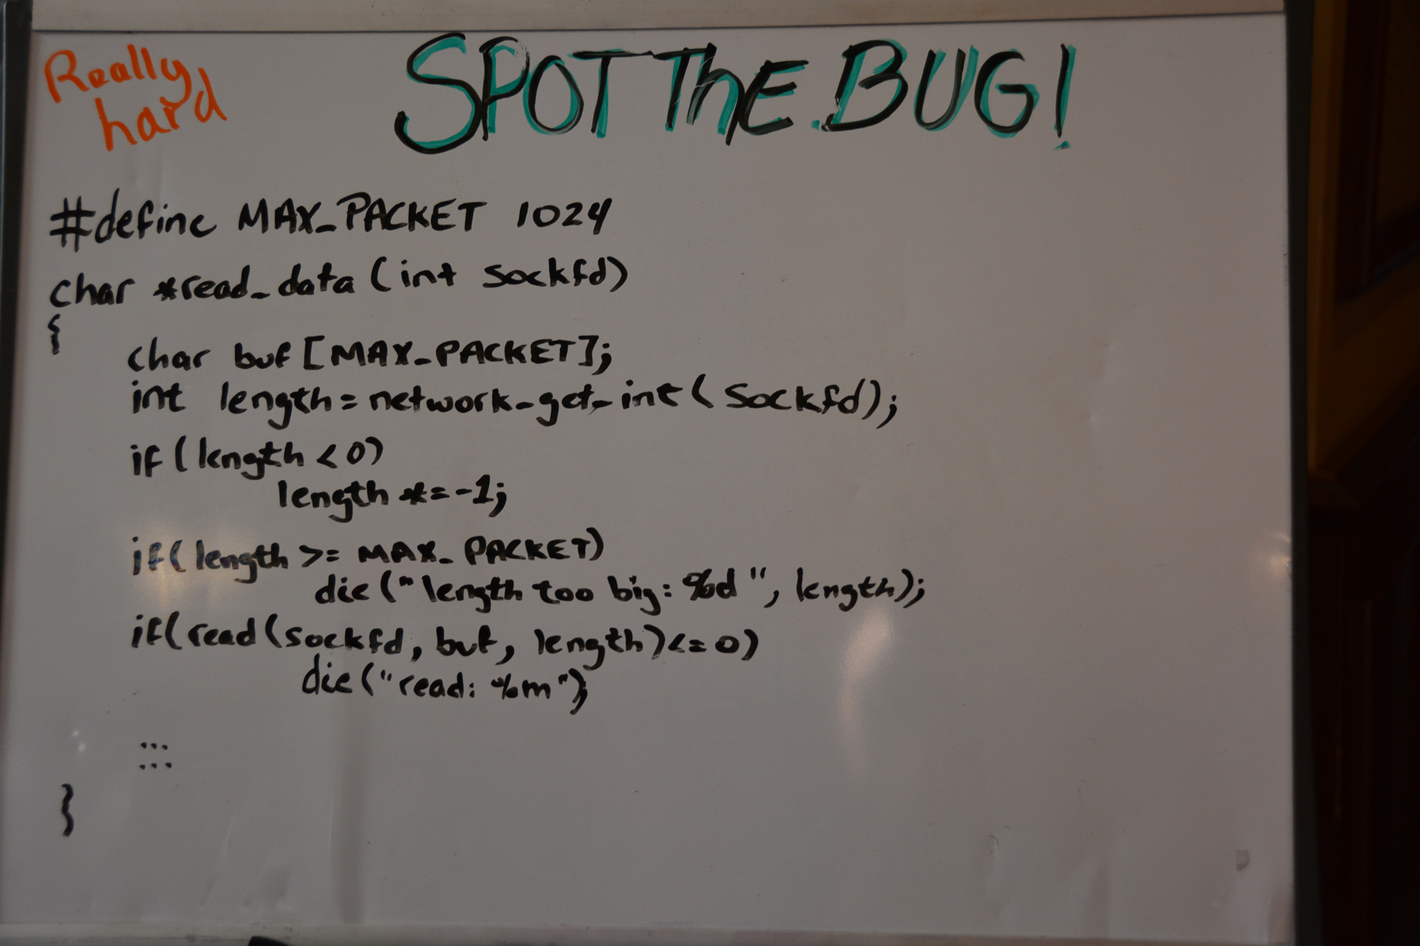 Really
hard
SPOT ThE BUG!
#define MAX_PACKET 1024
char *read_data (int sockfd)
{
char buf [MAX_PACKET];
int length = network_get_int (sockfd);
if (length < 0)
length *= -1;
if (length >= MAX_PACKET)
die ("length too big: %d", length);
if (read (sockfd, buf, length) <= 0)
die ("read: %m");
...
...
}